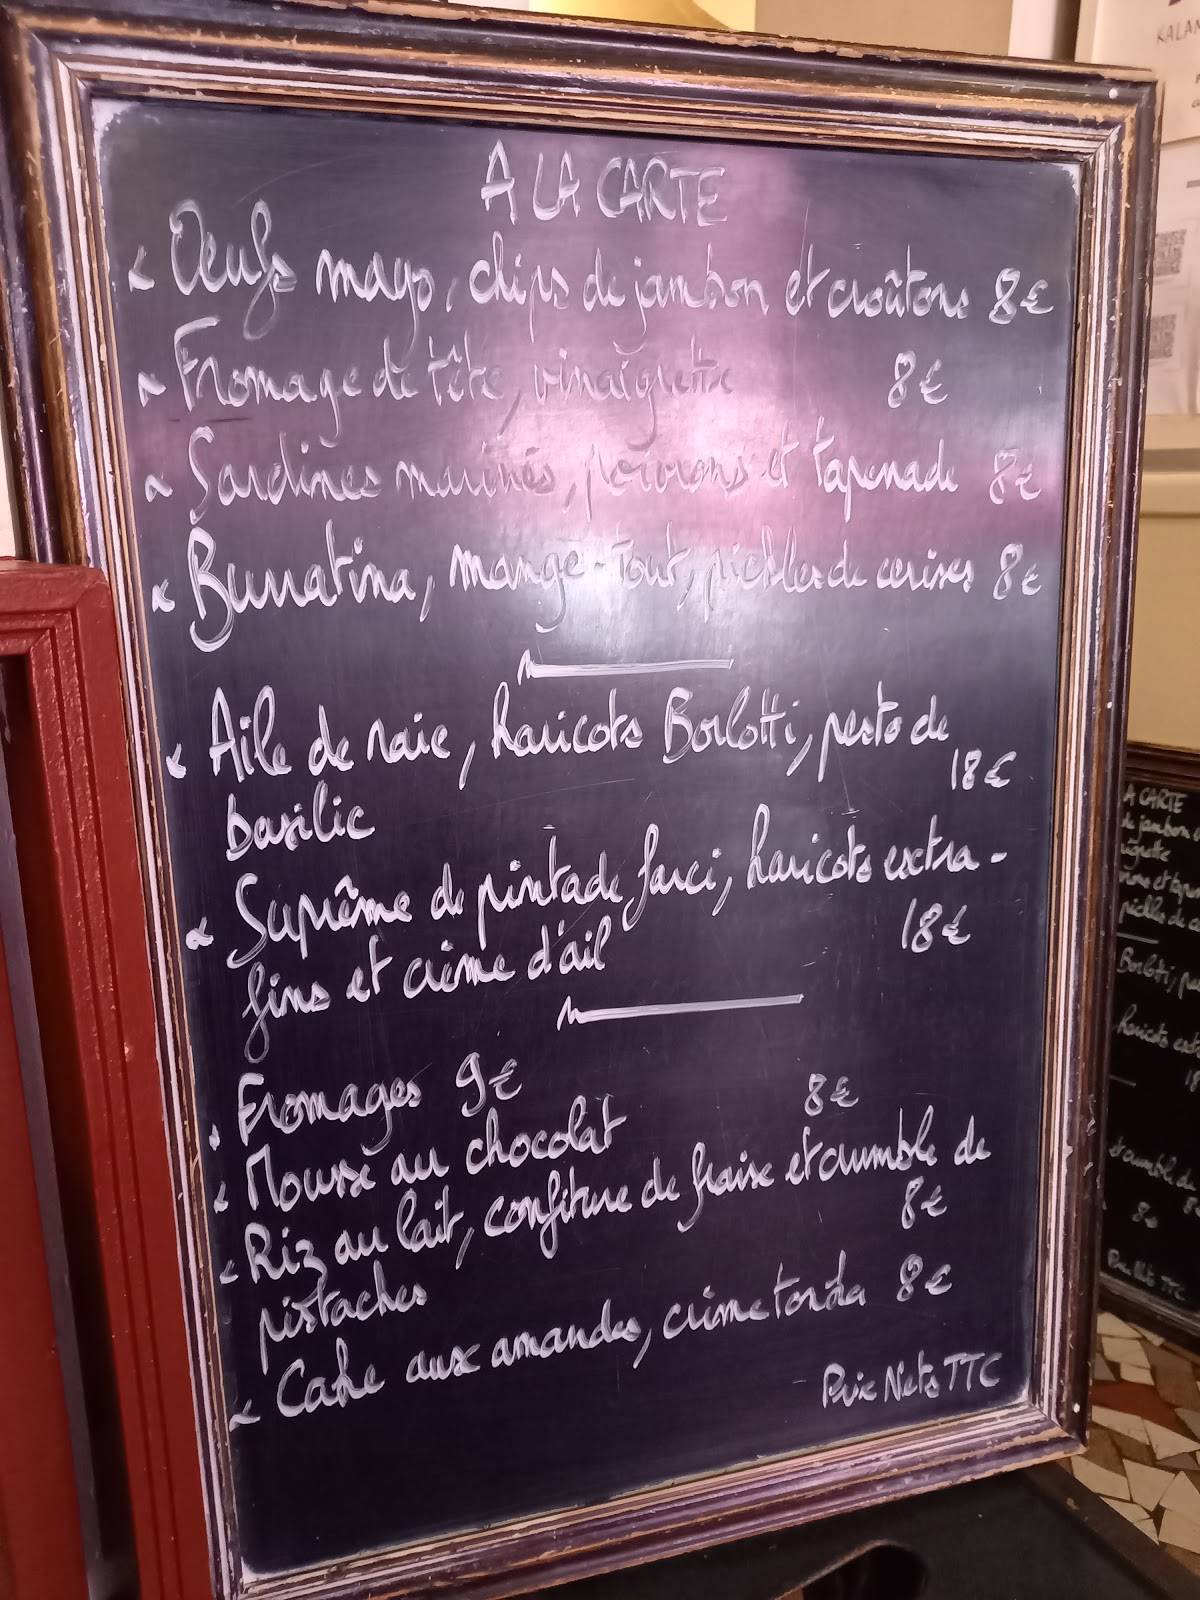 A LA CARTE
Oeufs mayo, chips de jambon et croûtons 8€
Fromage de tête, vinaigrette 8€
Sardines marinés, poivrons et tapenade 8€
Burratina, mange-tout, pickles de cerises 8€
Aile de raie, haricots Borlotti, pesto de
basilic 18€
Suprême de pintade farci, haricots extra-
fins et crème d'ail 18€
Fromages 9€
Mousse au chocolat 8€
Riz au lait, confiture de fraise et crumble de
pistaches 8€
Cake aux amandes, crème tonka 8€
Prix Nets TTC
A CARTE
de jambon
Borlotti,
haricots
crumble de
8€
Prix Nets TTC